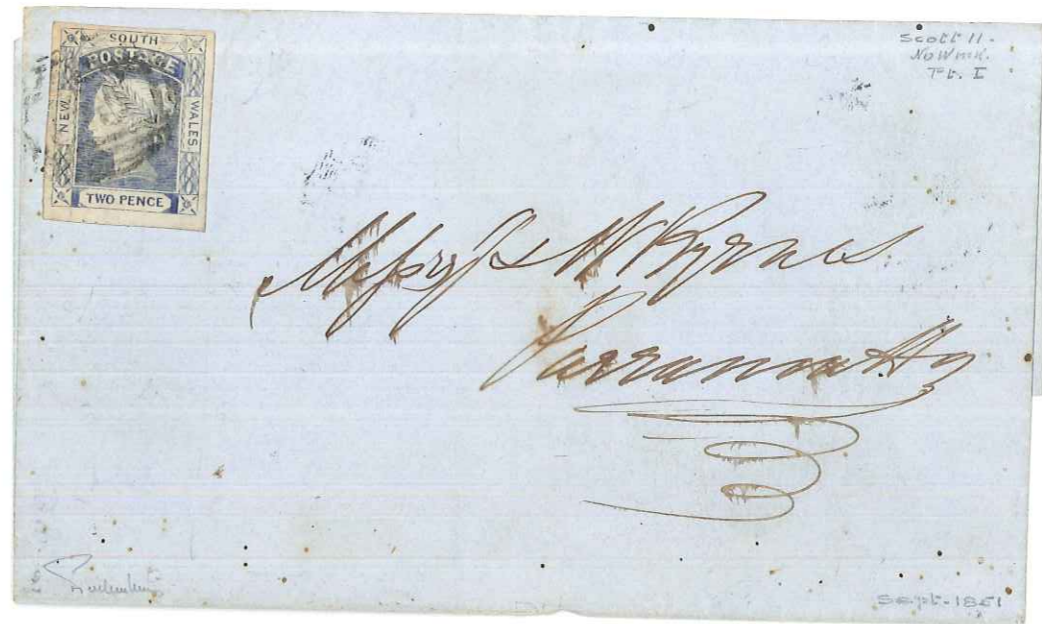 SOUTH
POSTAGE
NEW
WALES
TWO PENCE
Scott 11.
No Wmk.
Pt. I
Messrs J & W Byrnes
Parramatta
Sept-1851